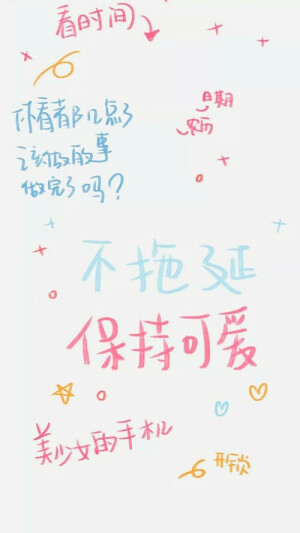 看时间
日期
农历
仔看都几点了
该做的事
做完了吗？
不拖延
保持可爱
美少女的手机
开锁